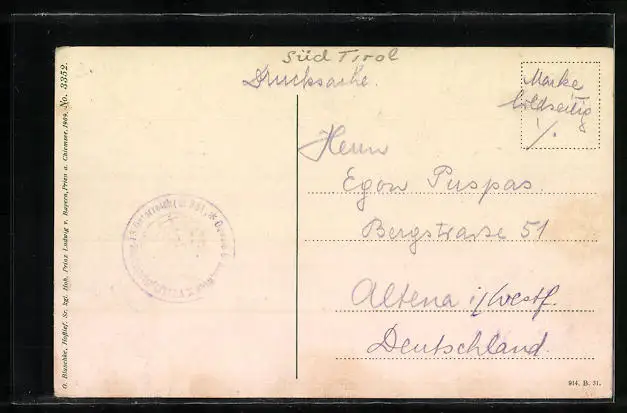 Süd Tirol
Drucksache.
Marke
bildseitig
Herrn
Egon Puspas.
Bergstrasse 51
Altena i/Westf.
Deutschland.
O. Blaschke, Hoflief. Sr. kgl. Hoh. Prinz Ludwig v. Bayern, Prien a. Chiemsee, 1909. No. 3352.
914. B. 31.